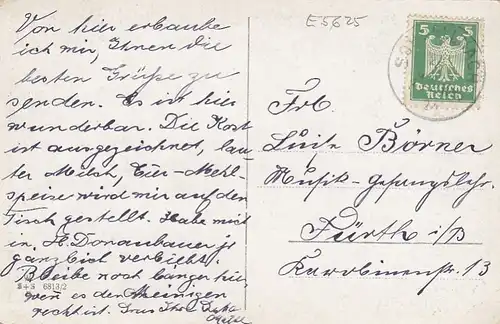 E5625
Von hier erlaube
ich mir, Ihnen die
besten Grüße zu
senden. Es ist hier
wunderbar. Die Kost
ist ausgezeichnet, lau-
ter Milch, Eier-Mehl-
speise wird mir auf den
Tisch gestellt. Habe mich
in H. Donaubauer
ganzlich verliebt.
Bleibe noch länger hier
wenn es den Meinigen
recht ist. Grus Ihre
S+S 6813/2
5 5
Deutsches
Reich
Frl.
Luise Börner
Musik-gesangslehr.
Fürth i/B
Karolinenstr. 13